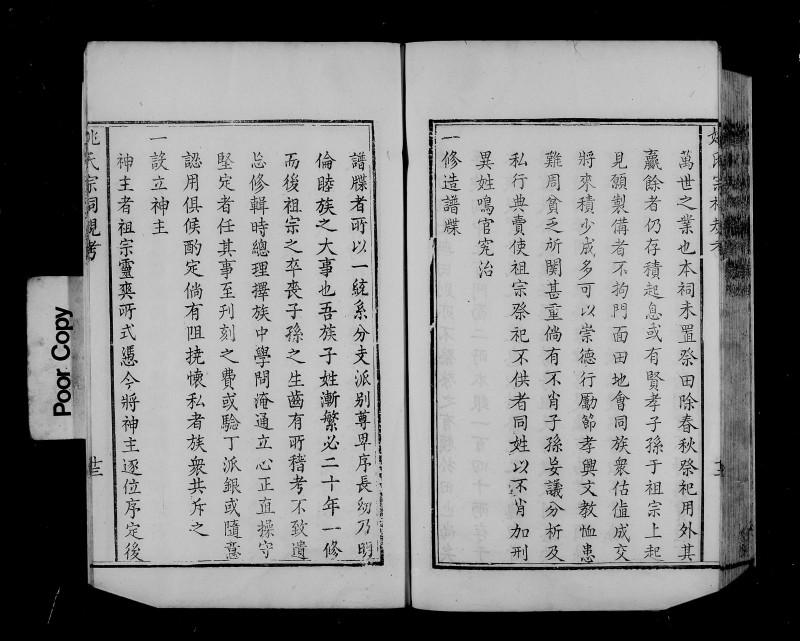 萬世之業也本祠未置祭田除春秋祭祀用外其
贏餘者仍存積起息或有賢孝子孫于祖宗上起
見願製備者不拘門面田地會同族衆估值成交
將來積少成多可以崇德行勵節孝興文教恤患
難周貧乏所關甚重倘有不肖子孫妄議分析及
私行典賣使祖宗祭祀不供者同姓以不肖加刑
異姓鳴官究治
一修造譜牒
譜牒者所以一統系分支派别尊卑序長幼乃明
倫睦族之大事也吾族子姓漸繁必二十年一修
而後祖宗之卒喪子孫之生齒有所稽考不致遺
忘修輯時總理擇族中學問淹通立心正直操守
堅定者任其事至刋刻之費或驗丁派銀或隨意
認用俱候酌定倘有阻撓懷私者族衆共斥之
一設立神主
神主者祖宗靈爽所式憑今將神主逐位序定後
姚氏宗祠規考
廿三
Poor Copy